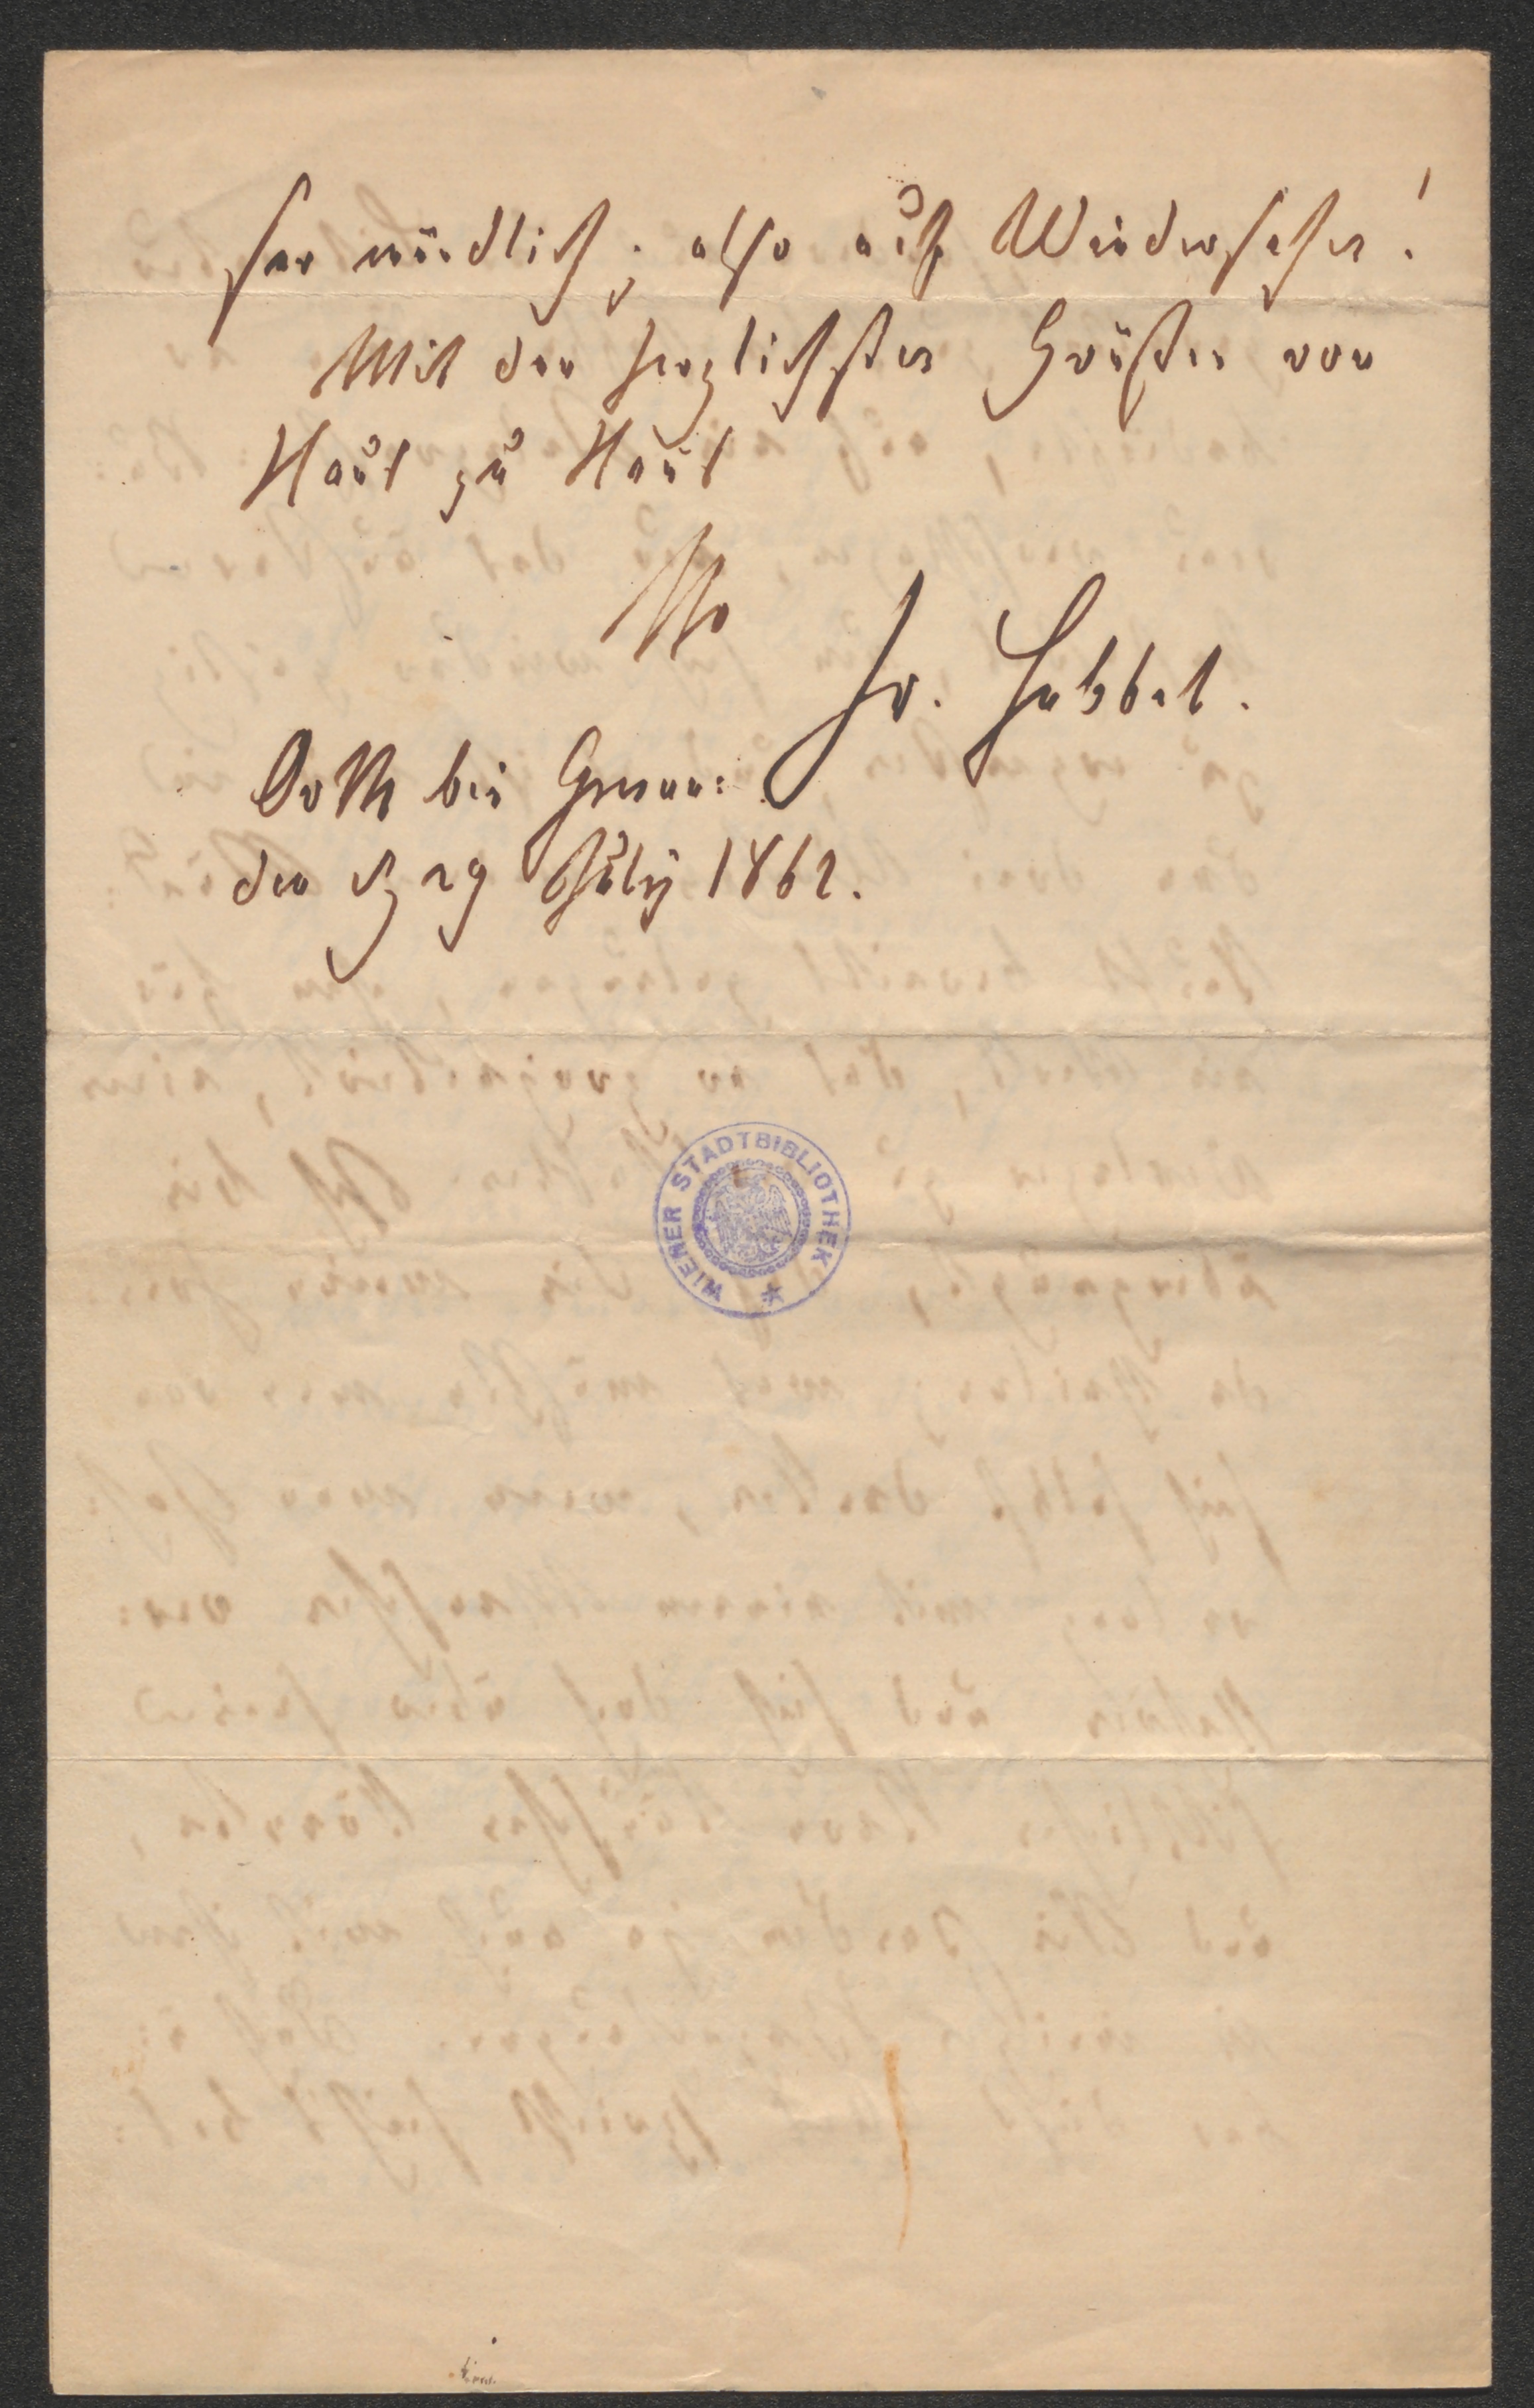 ser mündlich; also auf Wiedersehen!
Mit den herzlichsten Grüßen von
Haus zu Haus
Ihr
Fr. Hebbel.
Orth bei Gmunden
den 29 July 1862.
WIENER STADTBIBLIOTHEK